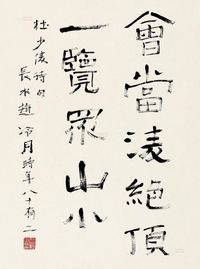 會當淩絕頂
一覽眾山小
杜少陵詩句
長水趙冷月時年八十有二